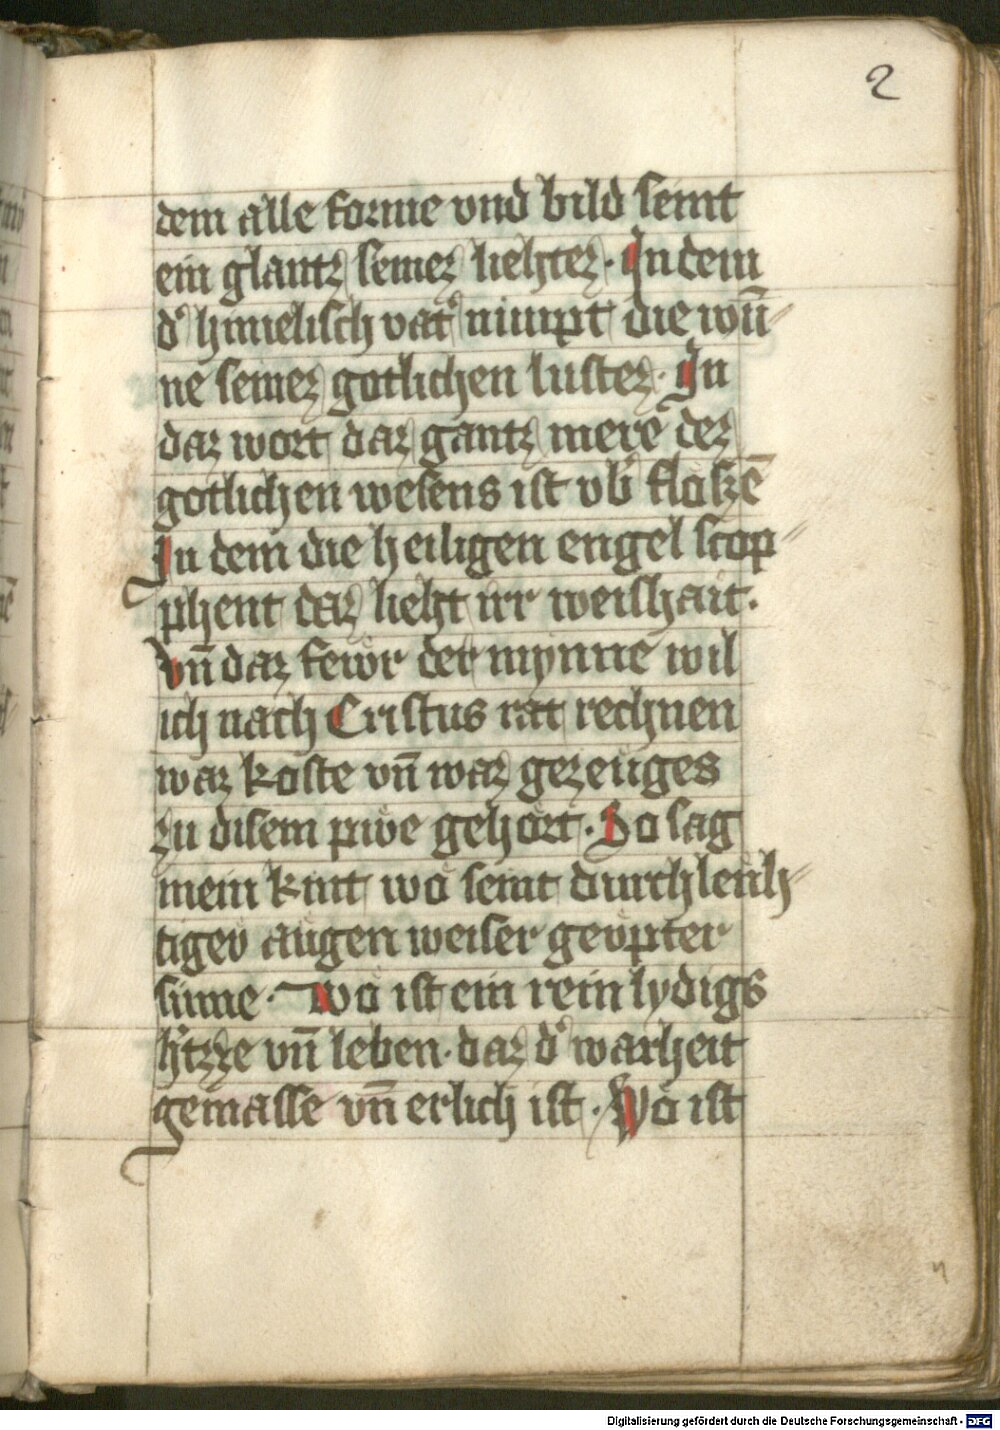 2
dem alle forme vnd bild seint
ein glantz seinez liehtez · In dem
dˢ himelisch vatˢ nimpt die wū⸗
ne seinez gotlichen lustez · In
daz wort daz gantz mere dez
gotlichen wesens ist vbˢ flozzē
In dem die heiligen engel scop⸗
phent daz lieht irr weishait ·
Vn̄ daz fewr der mynne wil
ich nach Cristus rat rechnen
waz koste vn̄ waz gezeuges
zu disem piwe gehort · So sag
mein kint wo seint durchleuh⸗
tigev augen weiser geopter
sinne · Wo ist ein rein lydigs
hˢtzze vn̄ leben · daz dˢ warheit
gemasse vn̄ erlich ist · Wo ist
Digitalisierung gefördert durch die Deutsche Forschungsgemeinschaft - DFG